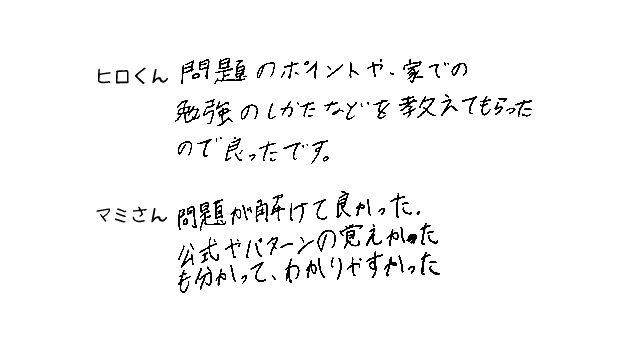 ヒロくん 問題のポイントや、家での
勉強のしかたなどを教えてもらった
ので良ったです。
マミさん 問題が解けて良かった.
公式やパターンの覚えかった
も分かって、わかりやすかった